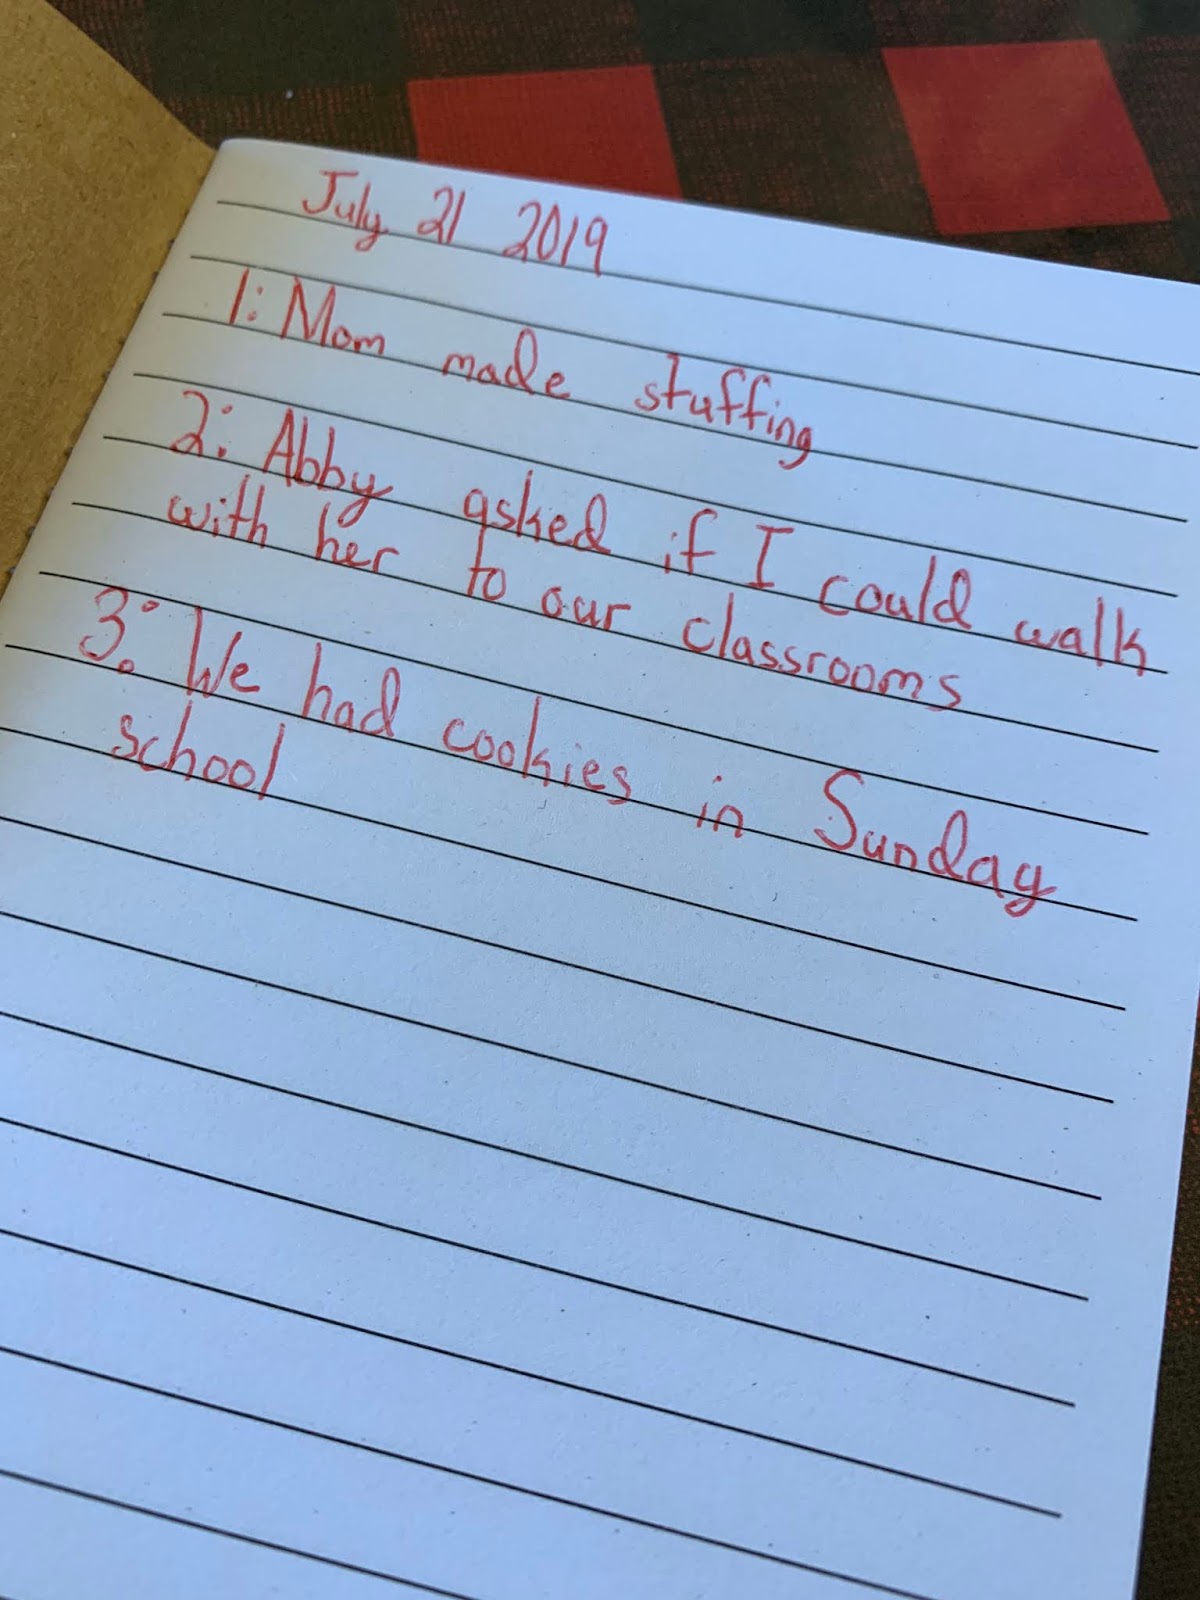 July 21 2019
1: Mom made stuffing
2: Abby asked if I could walk
with her to our classrooms
3: We had cookies in Sunday
school